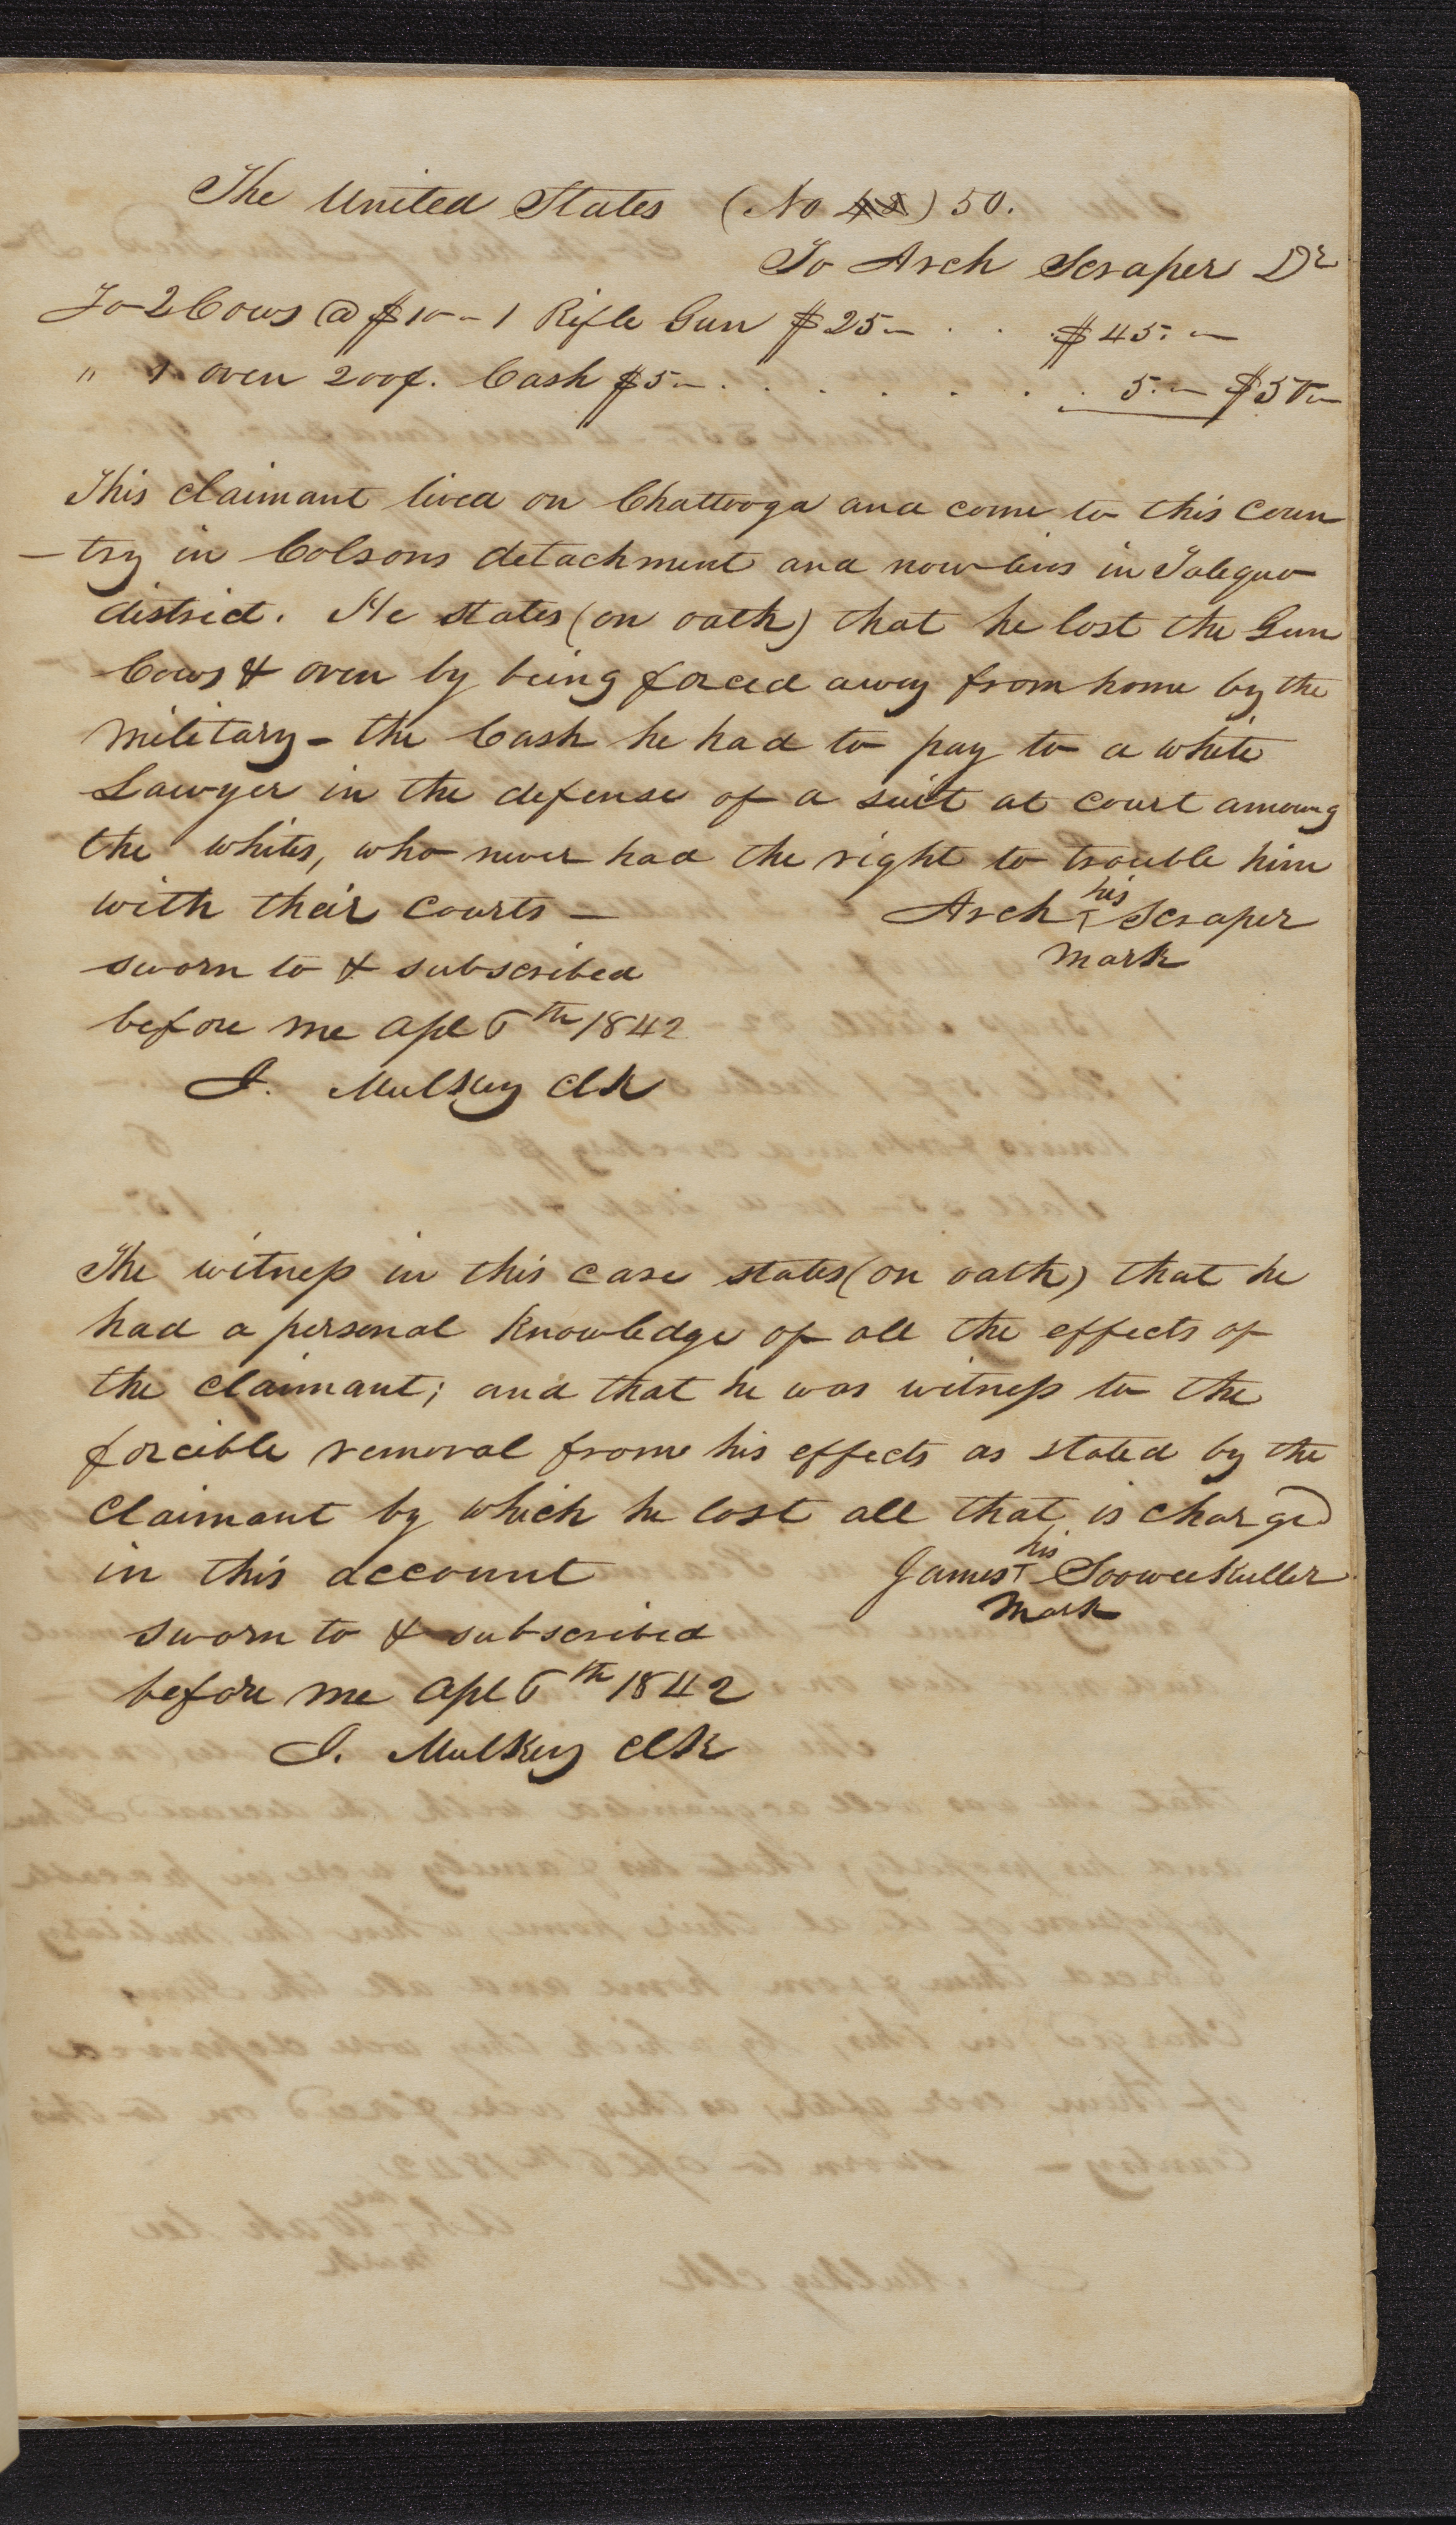 The United States (No 48) 50.
To Arch Scraper Dr
To 2 Cows @ $10 - 1 Rifle Gun $25 - . . $45.-
" 1 oven 200¢. Cash $5 - . . . . . . . 5.- $50-
This claimant lived on Chattooga and come to this coun
-try in Colsons detachment and now lives in Talequo
district. He states (on oath) that he lost the Gun
Cows & oven by being forced away from home by the
military - the Cash he had to pay to a white
Lawyer in the defense of a suit at court among
the whites, who never had the right to trouble him
with their courts -
his
Arch + Scraper
mark
sworn to & subscribed
before me Apl 6th 1842
J. Mulkey Clk
The witness in this case states (on oath) that he
had a personal knowledge of all the effects of
the claimant; and that he was witness to the
forcible removal from his effects as stated by the
claimant by which he lost all that is charged
in this account
his
James + Soowee Kuller
mark
sworn to & subscribed
before me Apl 6th 1842
J. Mulkey Clk